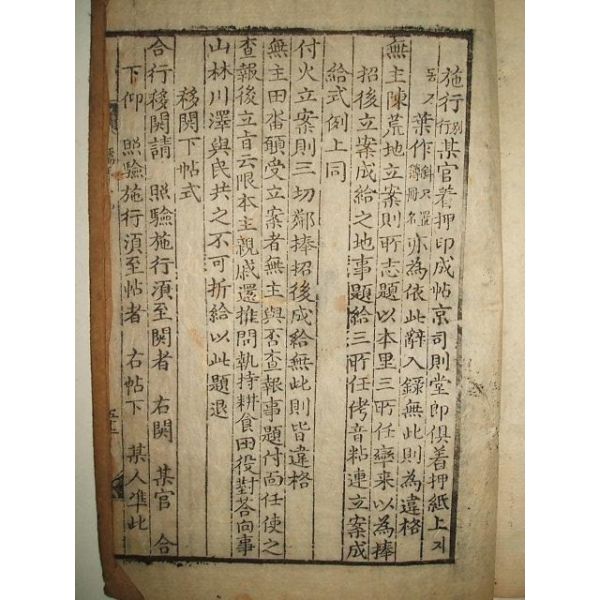 施行別行某官着押印成帖京司則堂郎俱着押紙上
葉作亦為依此辭入錄無此則為違格
無主陳荒地立案則所志題以本里三所任率來以為捧
招後立案成給之地事題給三所任侤音粘連立案成
給式例上同
付火立案則三切鄰捧招後成給無此則皆違格
無主田畓願受立案者無主與否查報事題付面任使之
查報後立旨云限本主親戚還推間執持耕食田役對答向事
山林川澤與民共之不可折給以此題退
移関下帖式
合行移関請 照驗施行須至関者 右関 某官 合
下仰 照驗施行須至帖者 右帖下 某人准此